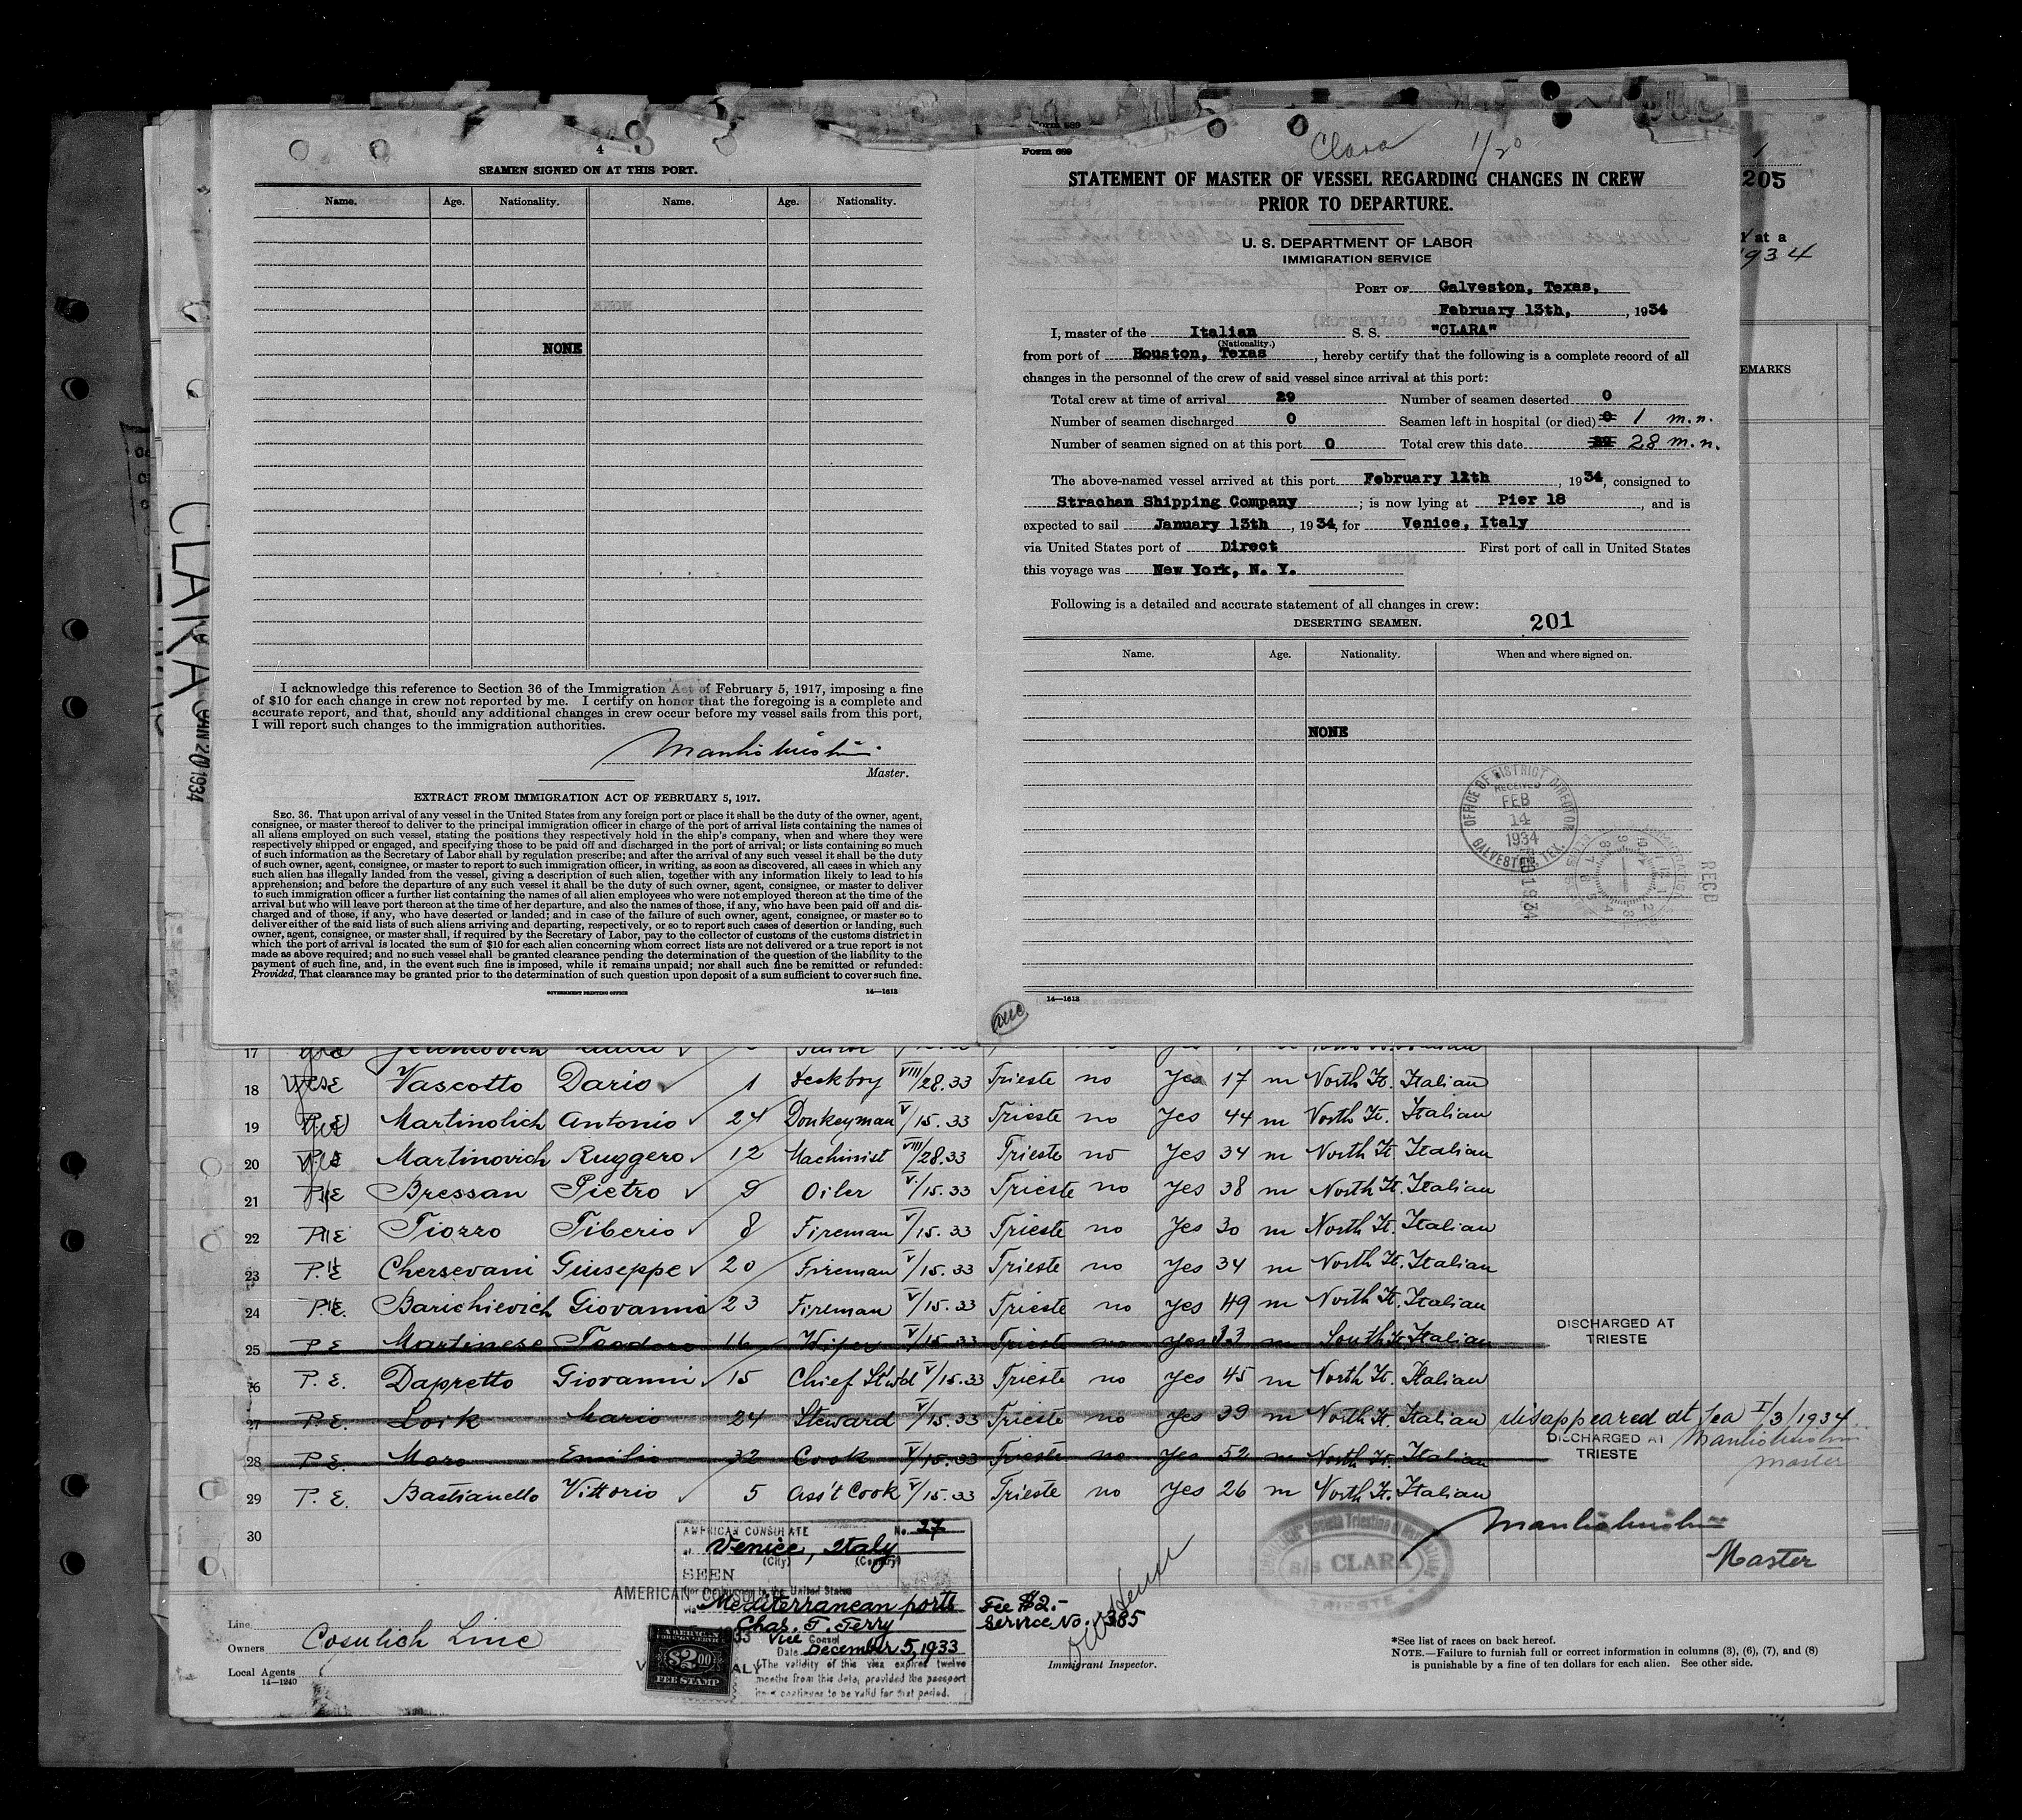 4
SEAMEN SIGNED ON AT THIS PORT.
Name. Age. Nationality. Name. Age. Nationality.
NONE
I acknowledge this reference to Section 36 of the Immigration Act of February 5, 1917, imposing a fine
of $10 for each change in crew not reported by me. I certify on honor that the foregoing is a complete and
accurate report, and that, should any additional changes in crew occur before my vessel sails from this port,
I will report such changes to the immigration authorities.
Master.
EXTRACT FROM IMMIGRATION ACT OF FEBRUARY 5, 1917.
SEC. 36. That upon arrival of any vessel in the United States from any foreign port or place it shall be the duty of the owner, agent,
consignee, or master thereof to deliver to the principal immigration officer in charge of the port of arrival lists containing the names of
all aliens employed on such vessel, stating the positions they respectively hold in the ship's company, when and where they were
respectively shipped or engaged, and specifying those to be paid off and discharged in the port of arrival; or lists containing so much
of such information as the Secretary of Labor shall by regulation prescribe; and after the arrival of any such vessel it shall be the duty
of such owner, agent, consignee, or master to report to such immigration officer, in writing, as soon as discovered, all cases in which any
such alien has illegally landed from the vessel, giving a description of such alien, together with any information likely to lead to his
apprehension; and before the departure of any such vessel it shall be the duty of such owner, agent, consignee, or master to deliver
to such immigration officer a further list containing the names of all alien employees who were not employed thereon at the time of the
arrival but who will leave port thereon at the time of her departure, and also the names of those, if any, who have been paid off and dis-
charged and of those, if any, who have deserted or landed; and in case of the failure of such owner, agent, consignee, or master so to
deliver either of the said lists of such aliens arriving and departing, respectively, or so to report such cases of desertion or landing, such
owner, agent, consignee, or master shall, if required by the Secretary of Labor, pay to the collector of customs of the customs district in
which the port of arrival is located the sum of $10 for each alien concerning whom correct lists are not delivered or a true report is not
made as above required; and no such vessel shall be granted clearance pending the determination of the question of the liability to the
payment of such fine, and, in the event such fine is imposed, while it remains unpaid; nor shall such fine be remitted or refunded:
Provided, That clearance may be granted prior to the determination of such question upon deposit of a sum sufficient to cover such fine.
GOVERNMENT PRINTING OFFICE 14—1613
Form 689
Clara 1/20
STATEMENT OF MASTER OF VESSEL REGARDING CHANGES IN CREW
PRIOR TO DEPARTURE.
U. S. DEPARTMENT OF LABOR
IMMIGRATION SERVICE
PORT OF Galveston, Texas,
February 13th, , 1934
I, master of the Italian S. S. "CLARA"
(Nationality.)
from port of Houston, Texas , hereby certify that the following is a complete record of all
changes in the personnel of the crew of said vessel since arrival at this port:
Total crew at time of arrival 29 Number of seamen deserted 0
Number of seamen discharged 0 Seamen left in hospital (or died) 0 1 m.n.
Number of seamen signed on at this port 0 Total crew this date 29 28 m.n.
The above-named vessel arrived at this port February 12th , 1934, consigned to
Strachan Shipping Company ; is now lying at Pier 18 , and is
expected to sail January 13th , 1934, for Venice, Italy
via United States port of Direct First port of call in United States
this voyage was New York, N. Y.
Following is a detailed and accurate statement of all changes in crew:
DESERTING SEAMEN. 201
Name. Age. Nationality. When and where signed on.
NONE
OFFICE OF DISTRICT DIRECTOR
RECEIVED
FEB
14
1934
GALVESTON, TEX.
REC'D
14—1613
1
205
at a
1934
EMARKS
CLARA
JAN 20 1934
17
18 Vascotto Dario 1 Deckboy VIII/28.33 Trieste no Yes 17 m North It. Italian
19 P.E Martinolich Antonio 24 Donkeyman V/15.33 Trieste no Yes 44 m North It. Italian
20 Martinovich Ruggero 12 Machinist VIII/28.33 Trieste no Yes 34 m North It. Italian
21 P.E Bressan Pietro 9 Oiler V/15.33 Trieste no Yes 38 m North It. Italian
22 P.E Tiozzo Tiberio 8 Fireman V/15.33 Trieste no Yes 30 m North It. Italian
23 P.E Chersevani Giuseppe 20 Fireman V/15.33 Trieste no Yes 34 m North It. Italian
24 P.E. Barichievich Giovanni 23 Fireman V/15.33 Trieste no Yes 49 m North It. Italian
25 P.E Martinese Teodoro 16 Wiper V/15.33 Trieste no yes 33 m South It. Italian DISCHARGED AT TRIESTE
26 P.E. Dapretto Giovanni 15 Chief Stwd V/15.33 Trieste no Yes 45 m North It. Italian
27 P.E. Lork Mario 24 Steward V/15.33 Trieste no Yes 39 m North It. Italian disappeared at sea I/3/1934
28 P.E. Moro Emilio 32 Cook V/15.33 Trieste no Yes 52 m North It. Italian DISCHARGED AT TRIESTE
master
29 P.E. Bastianello Vittorio 5 Ass't Cook V/15.33 Trieste no Yes 26 m North It. Italian
30
Master
AMERICAN CONSULATE No. 27
at Venice, Italy
(City) (Country)
SEEN
For the journey to the United States
via Mediterranean ports
Chas. T. Terry
Vice Consul
Date December 5, 1933
The validity of this visa expires twelve
months from this date, provided the passport
continues to be valid for that period.
AMERICAN
FOREIGN SERVICE
$2.00
FEE STAMP
Fee $2.-
Service No. 385
Immigrant Inspector.
S/S CLARA
TRIESTE
Line
Owners Cosulich Line
Local Agents
14—1240
*See list of races on back hereof.
NOTE.—Failure to furnish full or correct information in columns (3), (6), (7), and (8)
is punishable by a fine of ten dollars for each alien. See other side.